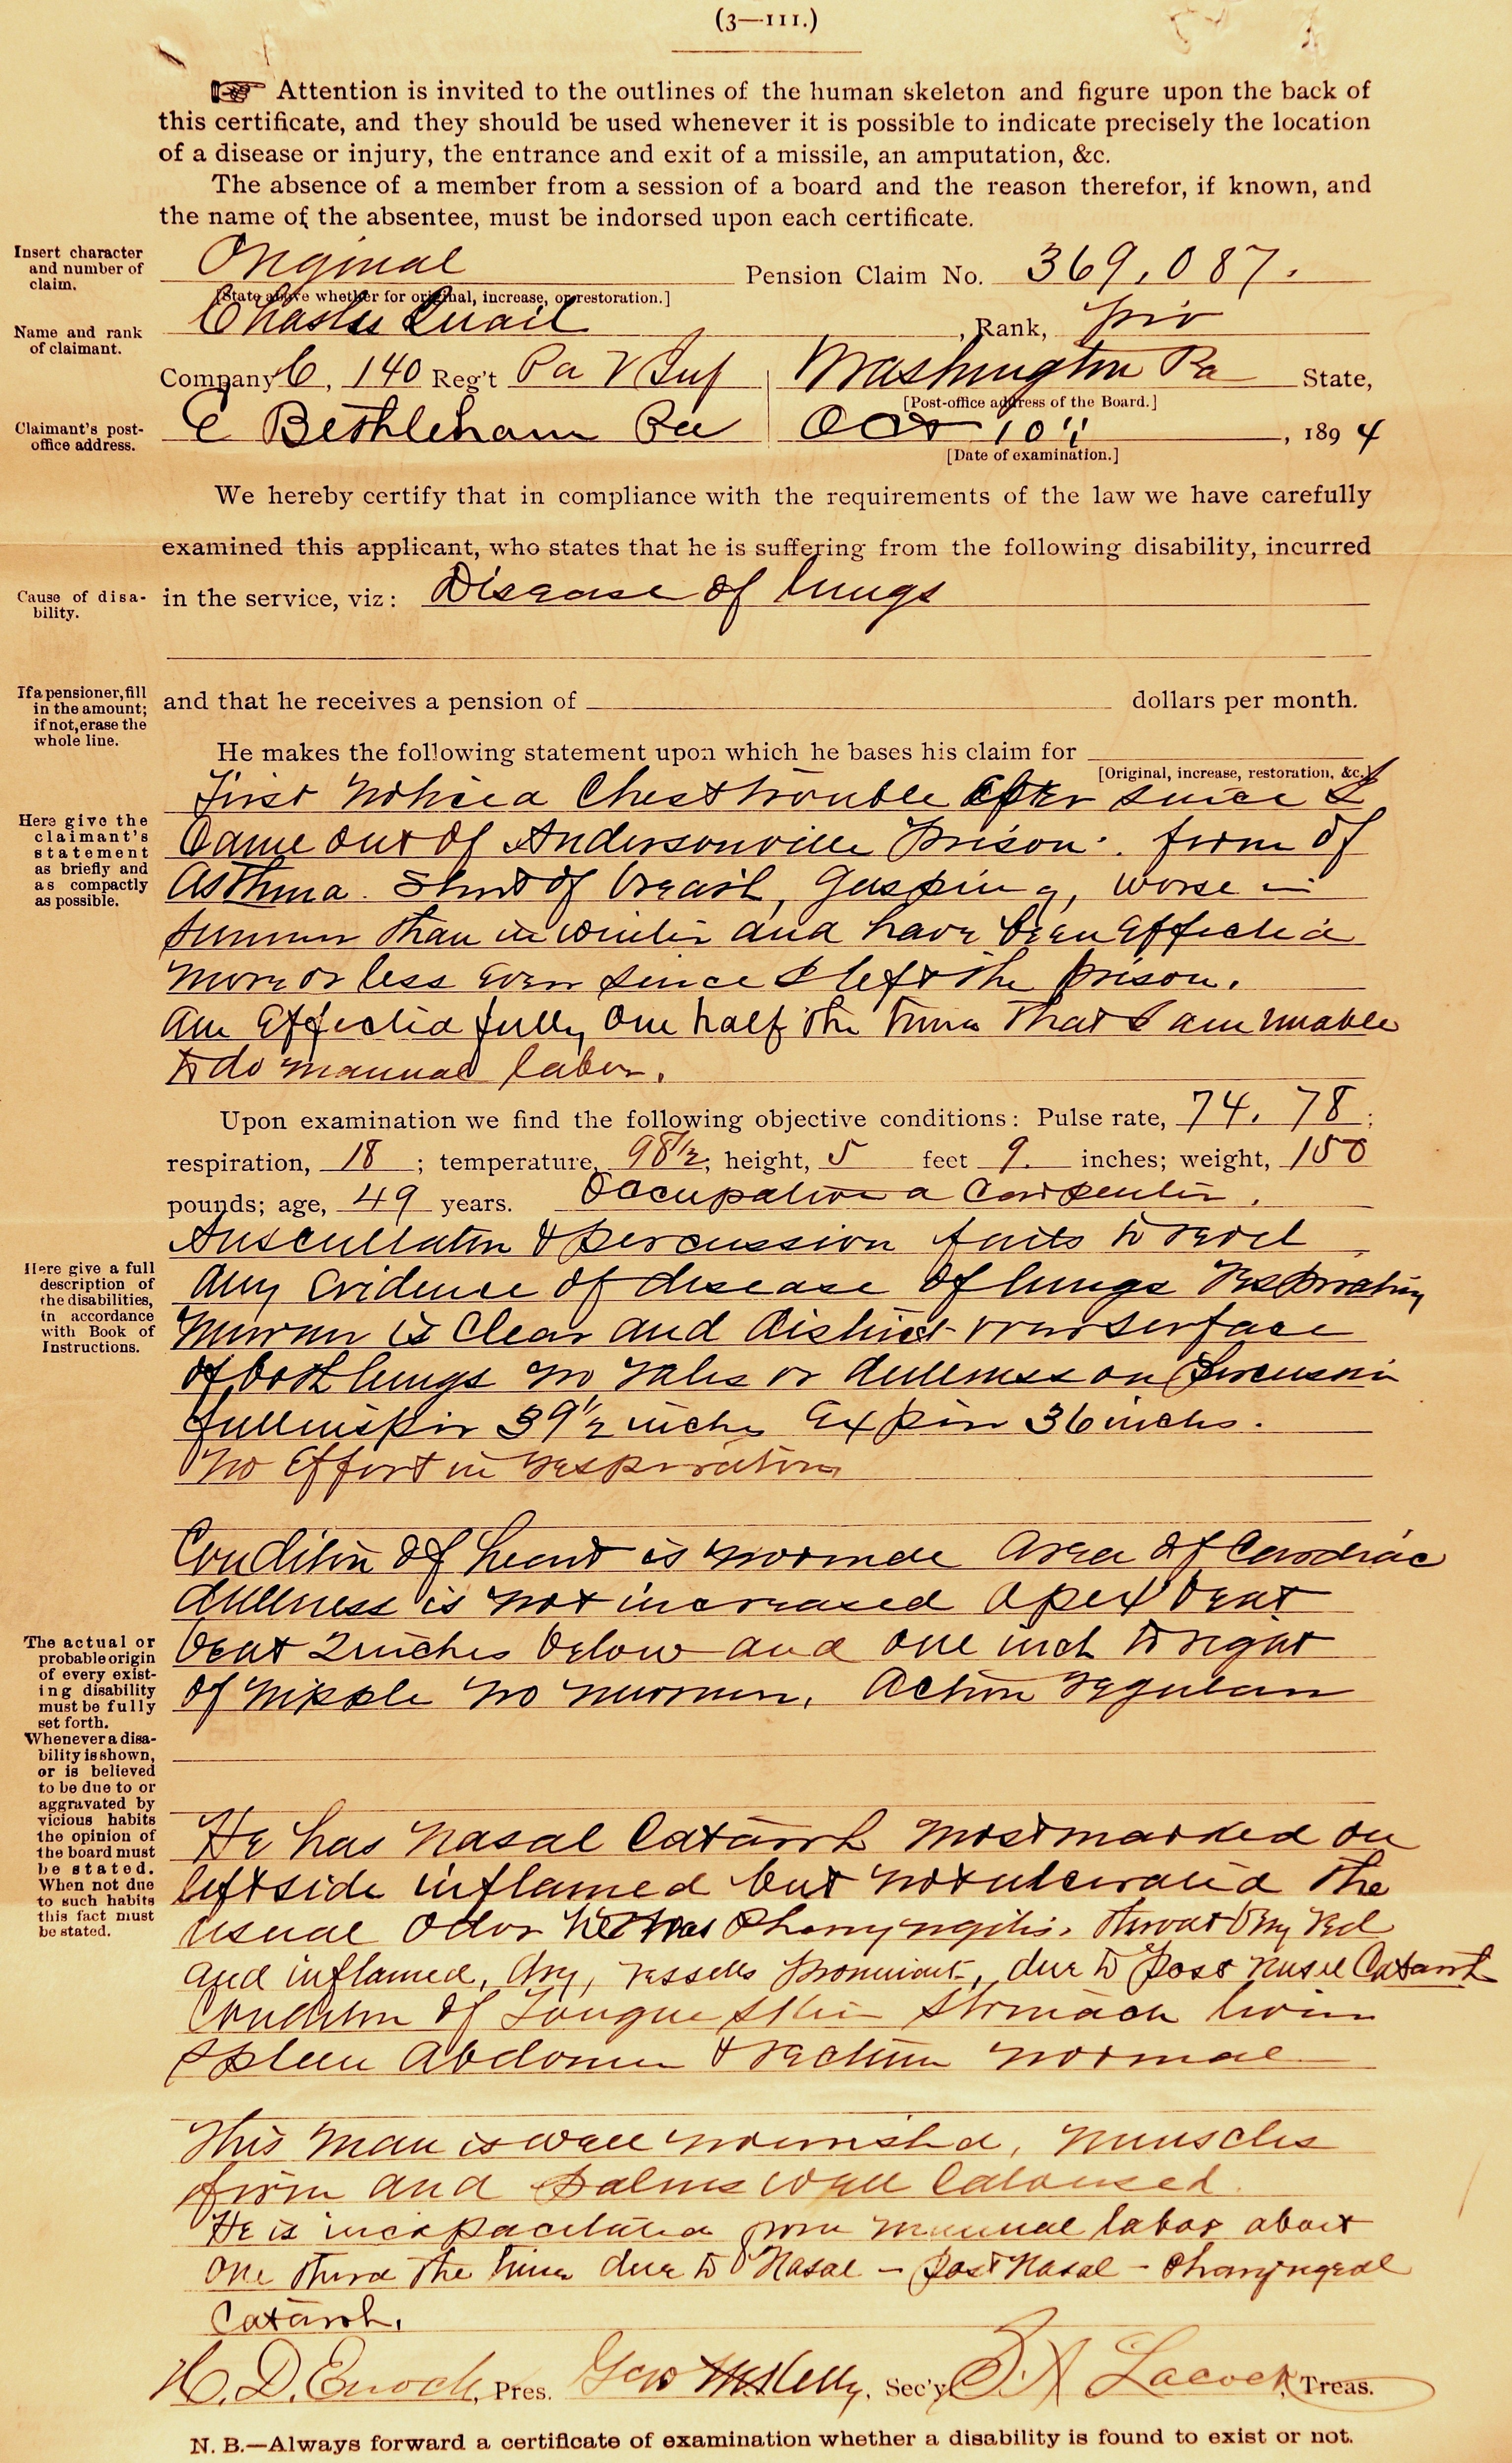 (3—111.)
☞ Attention is invited to the outlines of the human skeleton and figure upon the back of
this certificate, and they should be used whenever it is possible to indicate precisely the location
of a disease or injury, the entrance and exit of a missile, an amputation, &c.
The absence of a member from a session of a board and the reason therefor, if known, and
the name of the absentee, must be indorsed upon each certificate.
Insert character
and number of
claim.
Original Pension Claim No. 369,087.
[State above whether for original, increase, or restoration.]
Name and rank
of claimant.
Charles Quail, Rank, priv
Company C, 140 Reg't Pa V Inf Washington Pa State,
[Post-office address of the Board.]
Claimant's post-
office address.
E Bethleham Pa Oct 10", 1894
[Date of examination.]
We hereby certify that in compliance with the requirements of the law we have carefully
examined this applicant, who states that he is suffering from the following disability, incurred
Cause of disa-
bility.
in the service, viz: Disease of lungs
If a pensioner, fill
in the amount;
if not, erase the
whole line.
and that he receives a pension of dollars per month.
He makes the following statement upon which he bases his claim for
[Original, increase, restoration, &c.]
Here give the
claimant's
statement
as briefly and
as compactly
as possible.
First noticed Chest trouble after since I
Came out of Andersonville Prison. form of
Asthma. Short of breath, Gasping, worse in
summer than in winter and have been affected
more or less ever since I left the prison.
am affected fully one half the time that I am unable
to do manual labor.
Upon examination we find the following objective conditions: Pulse rate, 74. 78;
respiration, 18; temperature, 98½; height, 5 feet 9. inches; weight, 150
pounds; age, 49 years. Occupation a Carpenter.
Here give a full
description of
the disabilities,
in accordance
with Book of
Instructions.
Auscultation & percussion fails to
any Evidence of disease of lungs respiratory
murmur is Clear and distinct over surface
of both lungs no rales or dullness on percussion
full inspir 39½ inches Expir 36 inches.
no Effort in respiration
Condition of heart is normal area of Cardiac
dullness is not increased apex beat
beat 2 inches below and one inch to right
of nipple no murmur. Action regular
The actual or
probable origin
of every exist-
ing disability
must be fully
set forth.
Whenever a disa-
bility is shown,
or is believed
to be due to or
aggravated by
vicious habits
the opinion of
the board must
be stated.
When not due
to such habits
this fact must
be stated.
He has nasal Catarrh most marked on
left side inflamed but not ulcerated the
usual odor he has Pharyngitis. throat dry red
and inflamed, dry, vessells prominent, due to post nasal Catarrh
Condition of Tongue Skin Stomach liver
Spleen Abdomen & rectum normal
This man is well nourished, muscles
firm and palms well caloused.
He is incapacitated from manual labor about
one third the time due to Nasal - post Nasal - Pharyngeal
Catarrh.
H. D. Enoch, Pres. Geo McKelly, Sec'y S. A Lacock, Treas.
N. B.—Always forward a certificate of examination whether a disability is found to exist or not.